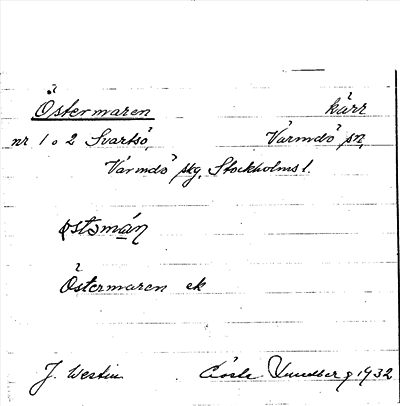 Östermaren kärr
nr 1 o 2 Svartsö, Värmdö sn,
Värmdö skg, Stockholms l.
Östermaren ek
J. Westin Gösta Lundberg 1932